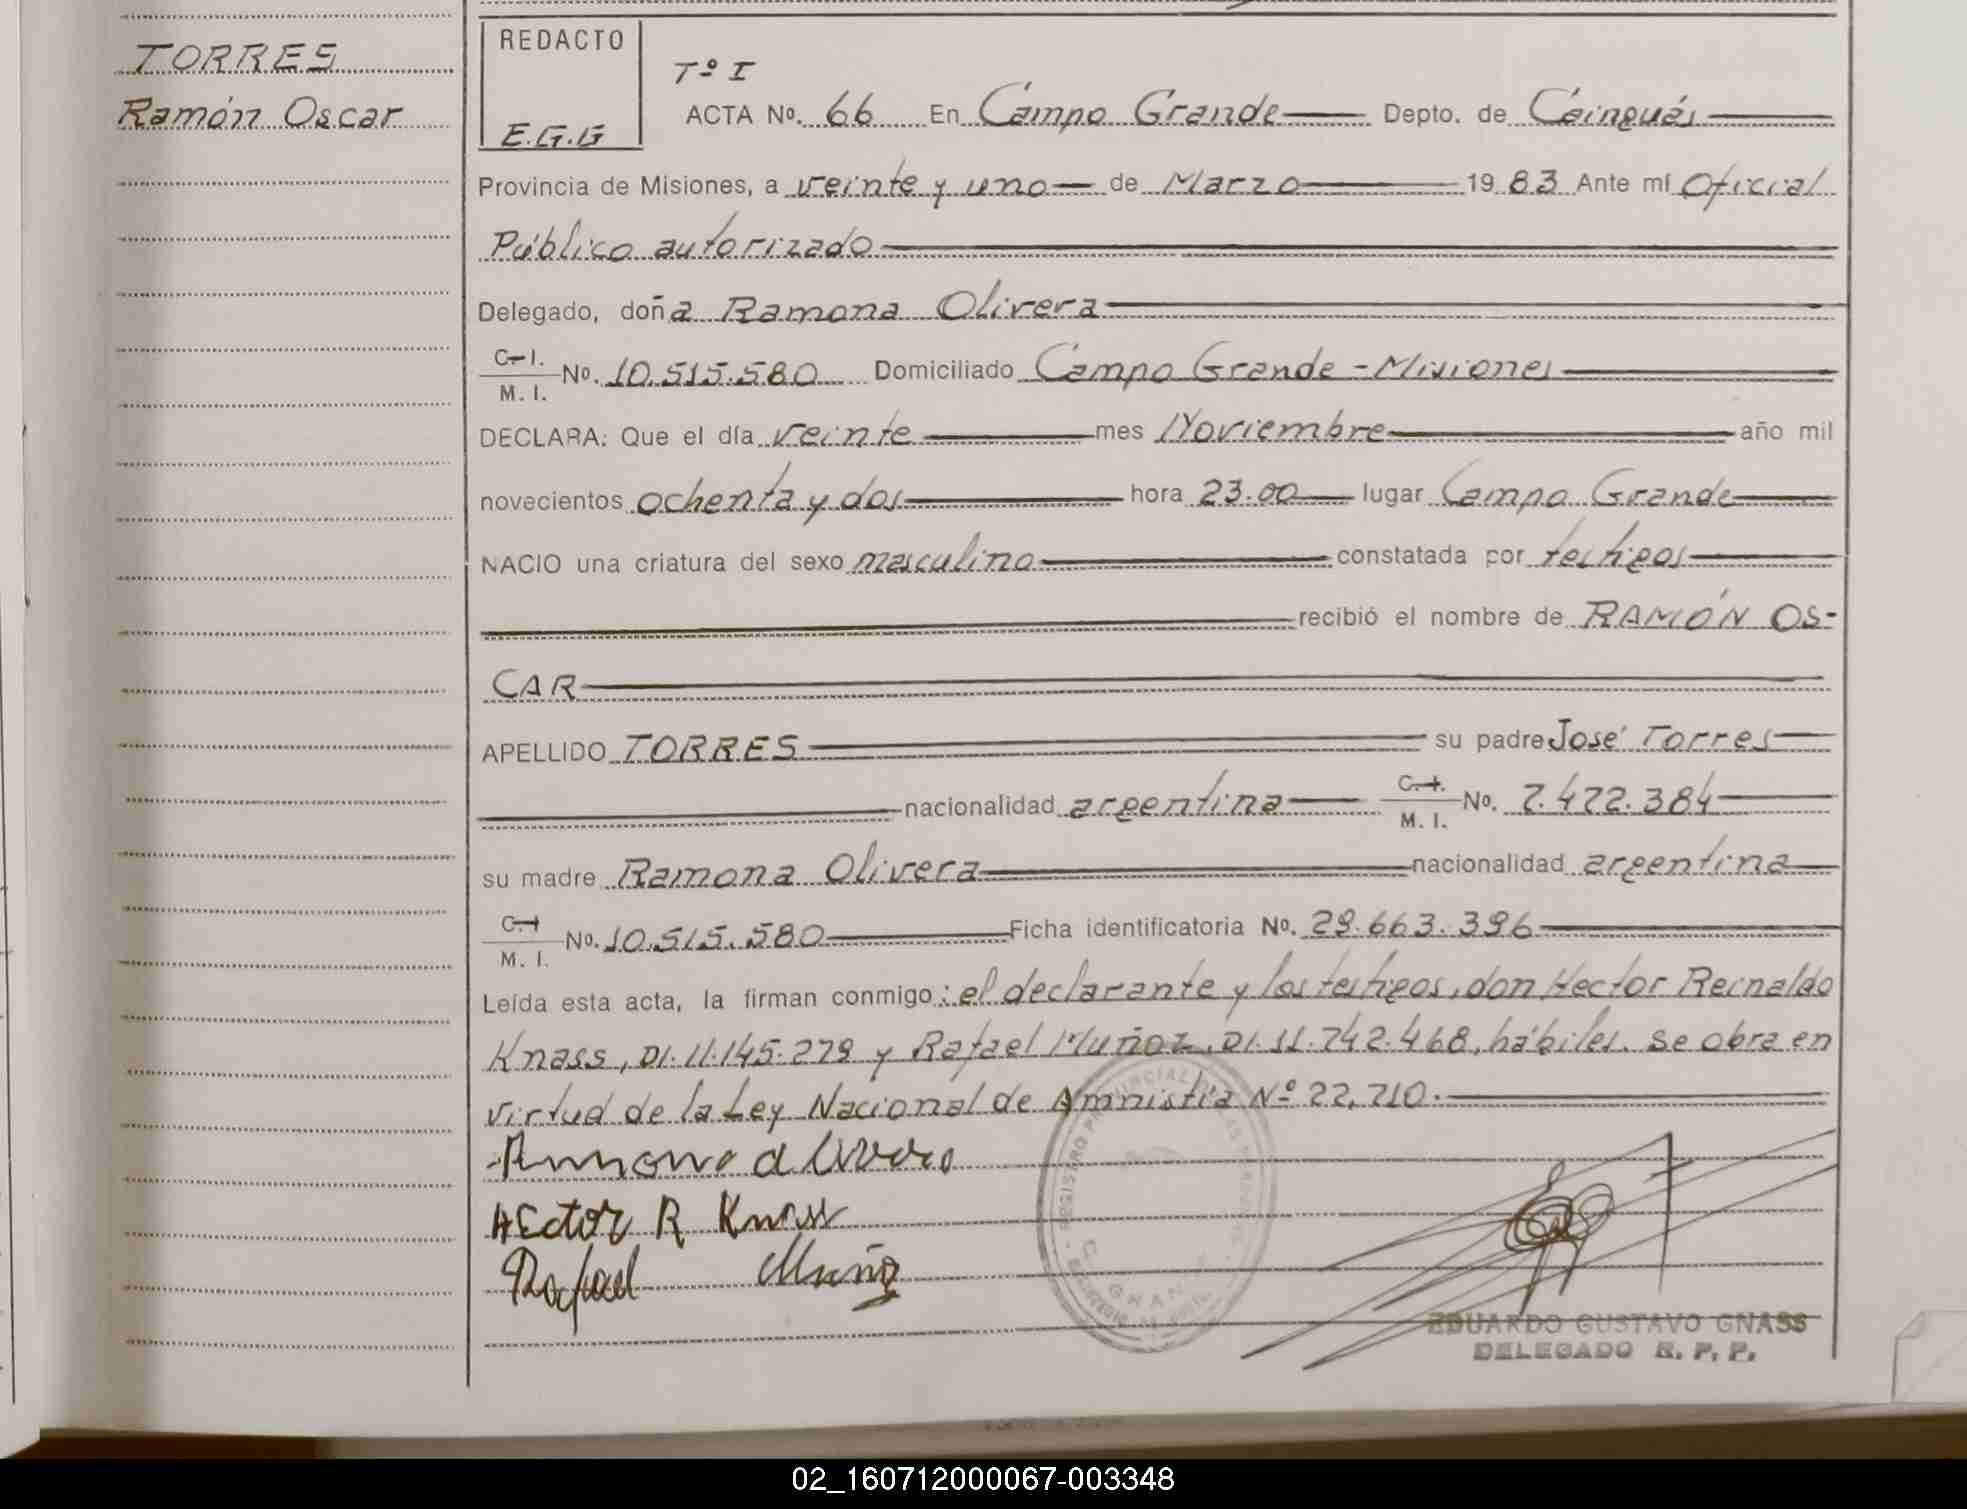 TORRES
Ramón Oscar
REDACTO
E.G.G
Tº I
ACTA Nº. 66 En Campo Grande Depto. de Cainguás
Provincia de Misiones, a veinte y uno de Marzo 19 83 Ante mí Oficial
Público autorizado
Delegado, doña Ramona Olivera
C.I. M. I. Nº. 10.515.580 Domiciliado Campo Grande - Misiones
DECLARA: Que el día veinte mes Noviembre año mil
novecientos ochenta y dos hora 23.00 lugar Campo Grande
NACIO una criatura del sexo masculino constatada por testigos
recibió el nombre de RAMÓN OS-
CAR
APELLIDO TORRES su padre José Torres
nacionalidad argentina C.I. M. I. Nº. 7.472.384
su madre Ramona Olivera nacionalidad argentina
C.I M. I. Nº. 10.515.580 Ficha identificatoria Nº. 29.663.396
Leída esta acta, la firman conmigo: el declarante y los testigos, don Hector Reinaldo
Knass, DI. 11.145.279 y Rafael Muñoz, DI. 11.742.468, hábiles. Se obra en
virtud de la Ley Nacional de Amnistía Nº 22.710.
Hector R Knass
Rafael Muñoz
EDUARDO GUSTAVO GNASS
DELEGADO R. P. P.
02_160712000067-003348